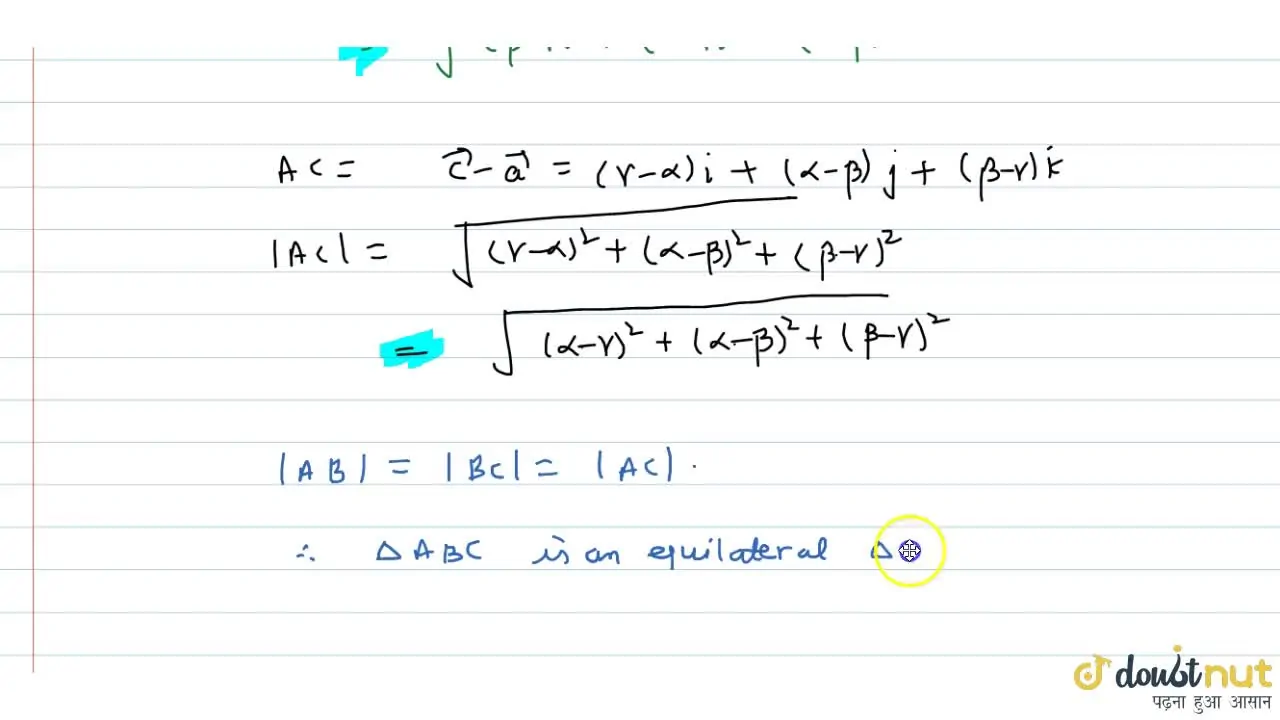 AC = c⃗ - a⃗ = (γ-α)i + (α-β)j + (β-γ)k
|AC| = √(γ-α)² + (α-β)² + (β-γ)²
= √(α-γ)² + (α-β)² + (β-γ)²
|AB| = |BC| = |AC| .
∴ Δ ABC is an equilateral Δ
doubtnut
पढ़ना हुआ आसान